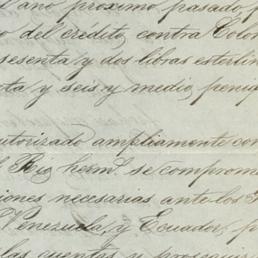 l año próximo pasado, p
o del crédito, contra Colom
sesenta y dos libras esterlin
ta y seis y medio peniq
autorizado ampliamente con
l Rio herm. se comprome
iones necesarias ante los
Venezuela, y Ecuador, p
las cuentas y proseguir